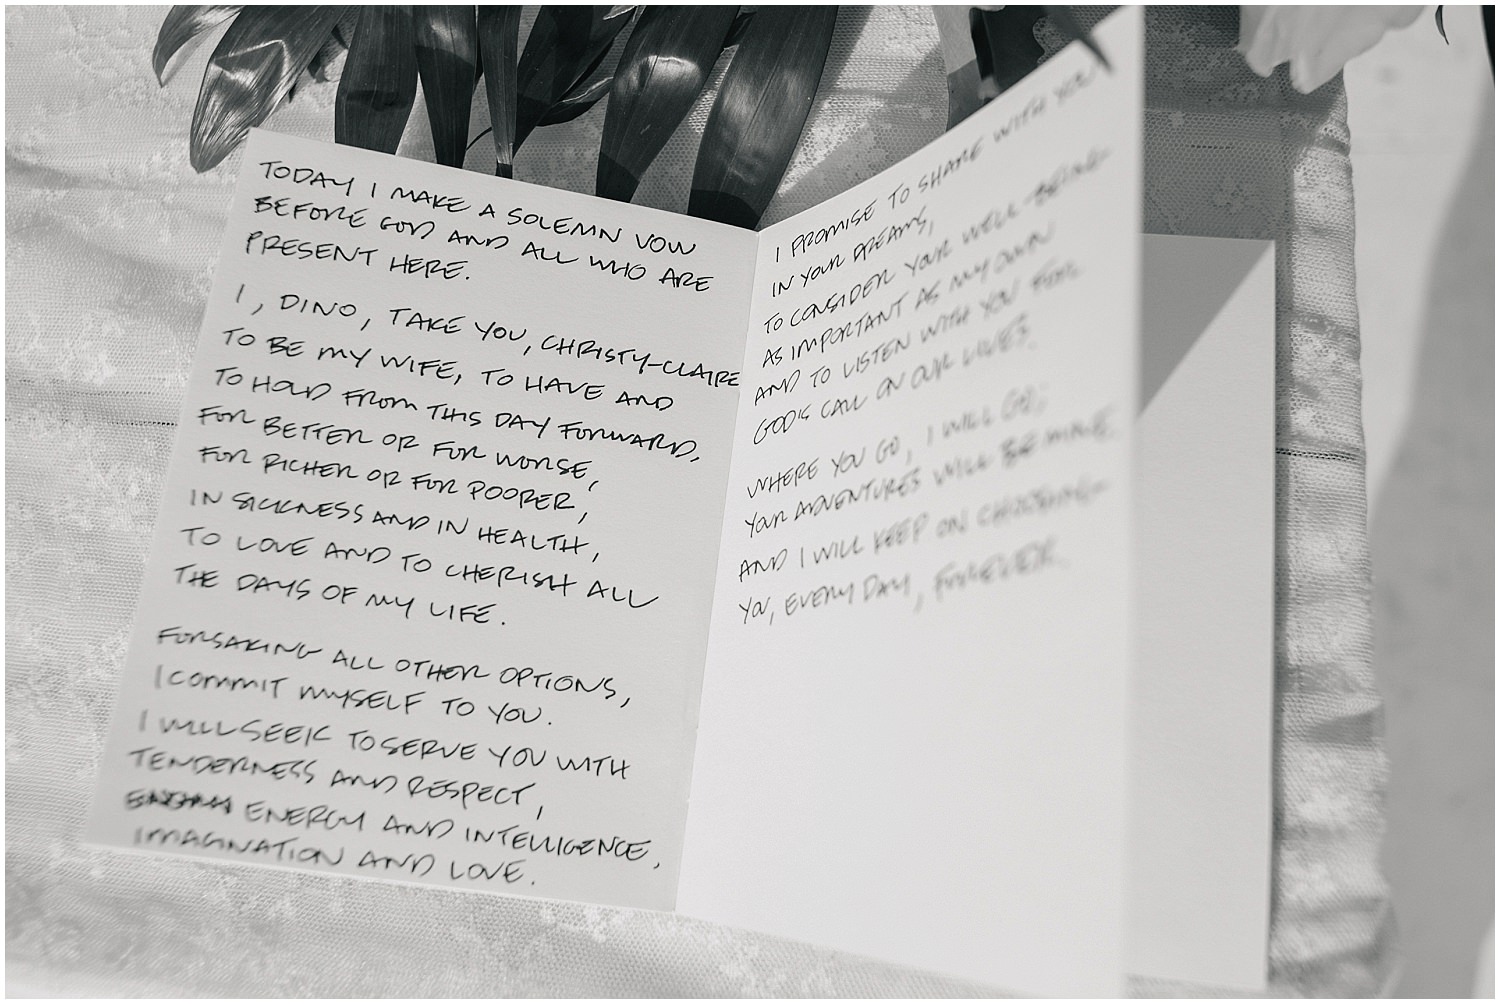 TODAY I MAKE A SOLEMN VOW
BEFORE GOD AND ALL WHO ARE
PRESENT HERE.
I, DINO, TAKE YOU, CHRISTY-CLAIRE
TO BE MY WIFE, TO HAVE AND
TO HOLD FROM THIS DAY FORWARD,
FOR BETTER OR FOR WORSE,
FOR RICHER OR FOR POORER,
IN SICKNESS AND IN HEALTH,
TO LOVE AND TO CHERISH ALL
THE DAYS OF MY LIFE.
FORSAKING ALL OTHER OPTIONS,
I COMMIT MYSELF TO YOU.
I WILL SEEK TO SERVE YOU WITH
TENDERNESS AND RESPECT,
ENERGY AND INTELLIGENCE,
IMAGINATION AND LOVE.
I PROMISE TO SHARE WITH YOU
IN YOUR DREAMS,
TO CONSIDER YOUR WELL-BEING
AS IMPORTANT AS MY OWN
AND TO LISTEN WITH YOU FOR
GOD'S CALL ON OUR LIVES.
WHERE YOU GO, I WILL GO;
YOUR ADVENTURES WILL BE MINE.
AND I WILL KEEP ON CHOOSING
YOU, EVERY DAY, FOREVER.